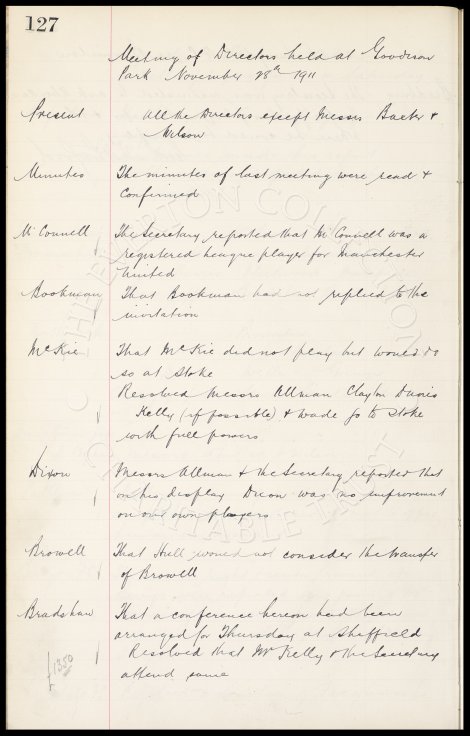 127
Meeting of Directors held at Goodison
Park November 28th 1911
Present
All the Directors except Messrs Baxter &
Wilson
Minutes
The minutes of last meeting were read &
Confirmed
McConnell
The Secretary reported that McConnell was a
registered League player for Manchester
United
Bookman
That Bookman had not replied to the
invitation
McKie
That McKie did not play but would do
so at Stoke
Resolved Messrs Allman Clayton Davies
Kelly (if possible) & Wade go to Stoke
with full powers
Dixon
Messrs Allman & the Secretary reported that
on his display Dixon was no improvement
on our own players
Browell
That Hull would not consider the transfer
of Browell
Bradshaw
That a conference hereon had been
arranged for Thursday at Sheffield
£1350
Resolved that Mr Kelly & the Secretary
attend same
THE EVERTON COLLECTION
CHARITABLE TRUST